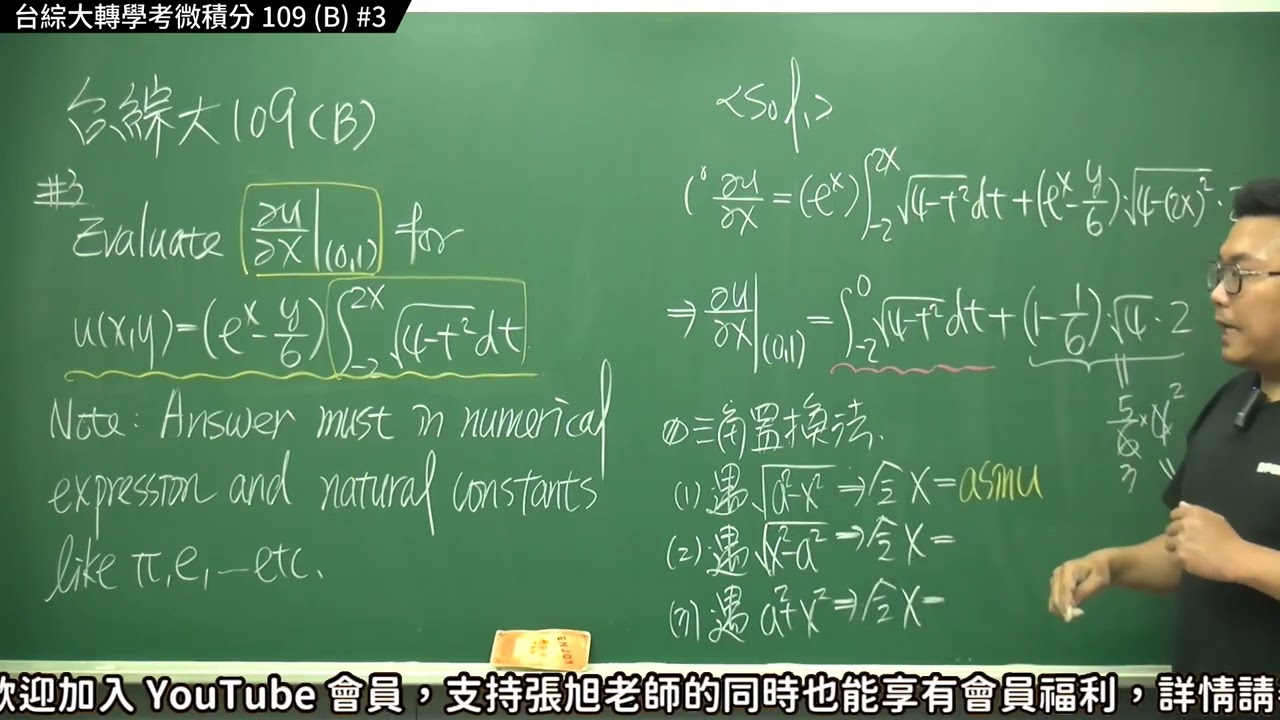 台綜大轉學考微積分 109 (B) #3
台綜大109(B)
#3
Evaluate ∂u/∂x|(0,1) for
u(x,y)=(e^x-y/6)∫_{-2}^{2x}√(4-t²)dt
Note: Answer must in numerical
expression and natural constants
like π,e,…etc.
<Sol>
1° ∂u/∂x=(e^x)∫_{-2}^{2x}√(4-t²)dt+(e^x-y/6)·√(4-(2x)²)·2
⇒∂u/∂x|(0,1)=∫_{-2}^{0}√(4-t²)dt+(1-1/6)·√4·2
5/6×4
2
3
三角置換法.
(1) 遇√(a²-x²)⇒令x=asinu
(2) 遇√(x²-a²)⇒令x=
(3) 遇a²+x²⇒令x=
ENJOY
歡迎加入 YouTube 會員，支持張旭老師的同時也能享有會員福利，詳情請